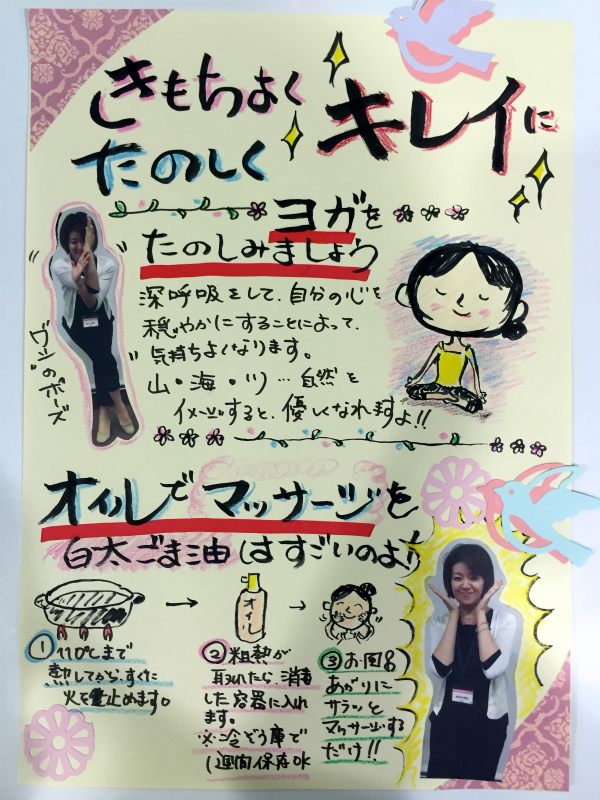 きもちよく
たのしく
キレイに
ヨガを
たのしみましょう
深呼吸をして、自分の心を
穏やかにすることによって、
気持ちよくなります。
山・海・ソ…自然を
イメージすると、優しくなれますよ!!
ワシのポーズ
オイルでマッサージを
白太ごま油はすごいのよ!
オイル
① 110℃まで
熱してから、すぐに
火を止めます。
② 粗熱が
取れたら、消毒
した容器に入れ
ます。
※冷ぞう庫で
1週間保存OK
③ お風呂
あがりに
サラッと
マッサージする
だけ!!